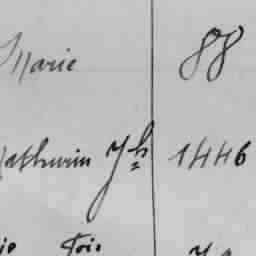 Marie 88
Mathurin Jh 1446